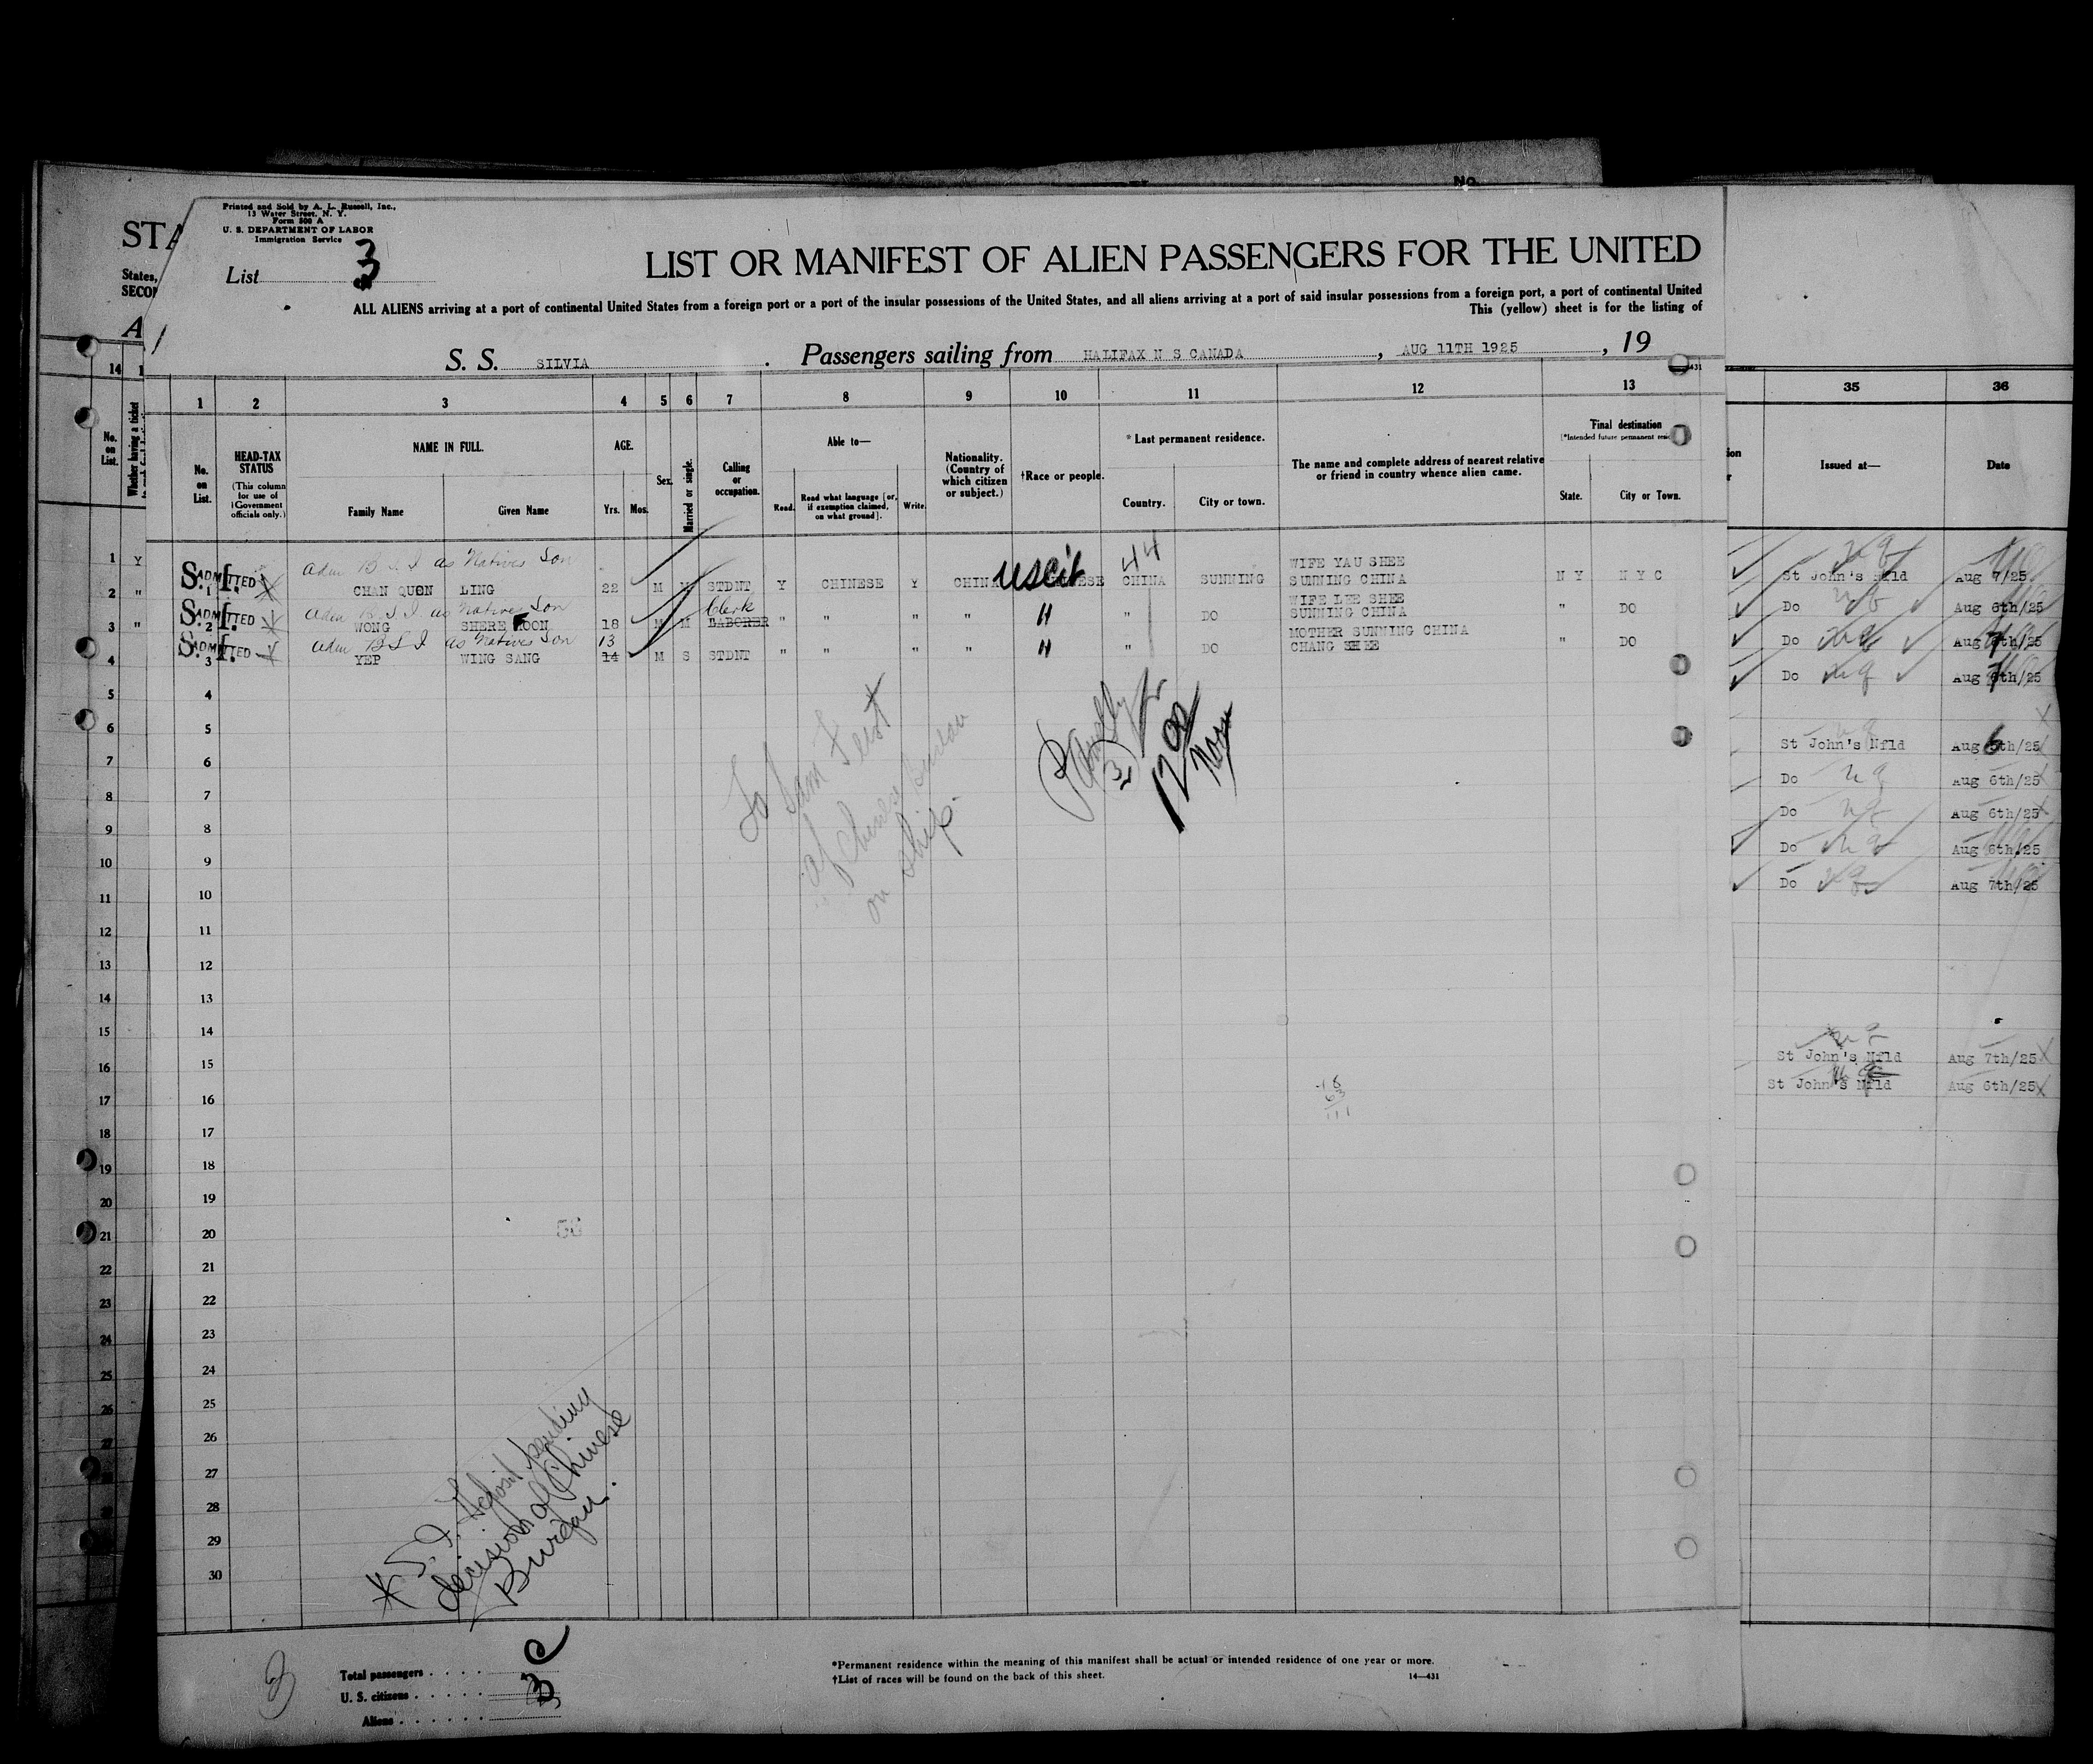 No.
STA
States,
SECON
A
Printed and Sold by A. L. Russell, Inc.,
13 Water Street, N. Y.
Form 500 A
U. S. DEPARTMENT OF LABOR
Immigration Service
List 3
LIST OR MANIFEST OF ALIEN PASSENGERS FOR THE UNITED
ALL ALIENS arriving at a port of continental United States from a foreign port or a port of the insular possessions of the United States, and all aliens arriving at a port of said insular possessions from a foreign port, a port of continental United
This (yellow) sheet is for the listing of
S. S. SILVIA . Passengers sailing from HALIFAX N S CANADA , AUG 11TH 1925 , 19
14 1 2 3 4 5 6 7 8 9 10 11 12 13 35 36
No. on List.
Whether having a ticket
No. on List.
HEAD-TAX STATUS
(This column for use of Government officials only.)
NAME IN FULL.
Family Name Given Name
AGE.
Yrs. Mos.
Sex.
Married or single.
Calling or occupation.
Able to—
Read. Read what language [or, if exemption claimed, on what ground]. Write.
Nationality. (Country of which citizen or subject.)
†Race or people.
* Last permanent residence.
Country. City or town.
The name and complete address of nearest relative or friend in country whence alien came.
Final destination
State. City or Town.
Issued at— Date
Adm B S I as Natives Son
44
WIFE YAU SHEE
S.I. ADMITTED 1 CHAN QUON LING 22 M M STDNT Y CHINESE Y CHINA uscit CHINESE CHINA SUNNING SUNNING CHINA N Y N Y C
Adm B.S.I. as Natives Son
Clerk
WIFE LEE SHEE
S.I. ADMITTED 2 WONG SHERE KOON 18 M M LABORER " " " " " " DO SUNNING CHINA " DO
Adm B S I as Natives Son 13
MOTHER SUNNING CHINA
S.I. ADMITTED 3 YEP WING SANG 14 M S STDNT " " " " " " DO CHANG SHEE " DO
St John's Nfld Aug 7/25
Do Aug 6th/25
Do Aug 7th/25
Do Aug 7th/25
St John's Nfld Aug 6th/25
Do Aug 6th/25
Do Aug 6th/25
Do Aug 6th/25
Do Aug 7th/25
St John's Nfld Aug 7th/25
St John's Nfld Aug 6th/25
1 Y
2 "
3 "
4
5
6
7
8
9
10
11
12
13
14
15
16
17
18
19
20
21
22
23
24
25
26
27
4
5
6
7
8
9
10
11
12
13
14
15
16
17
18
19
20
21
22
23
24
25
26
27
28
29
30
To Sam
of Chinese Bureau
on ship.
(3)
12
63
111
56
* S. I. pending
decision of Chinese
Bureau.
3
Total passengers . . . .
U. S. citizens . . . . . 3
Aliens . . . . . .
*Permanent residence within the meaning of this manifest shall be actual or intended residence of one year or more.
†List of races will be found on the back of this sheet. 14—431